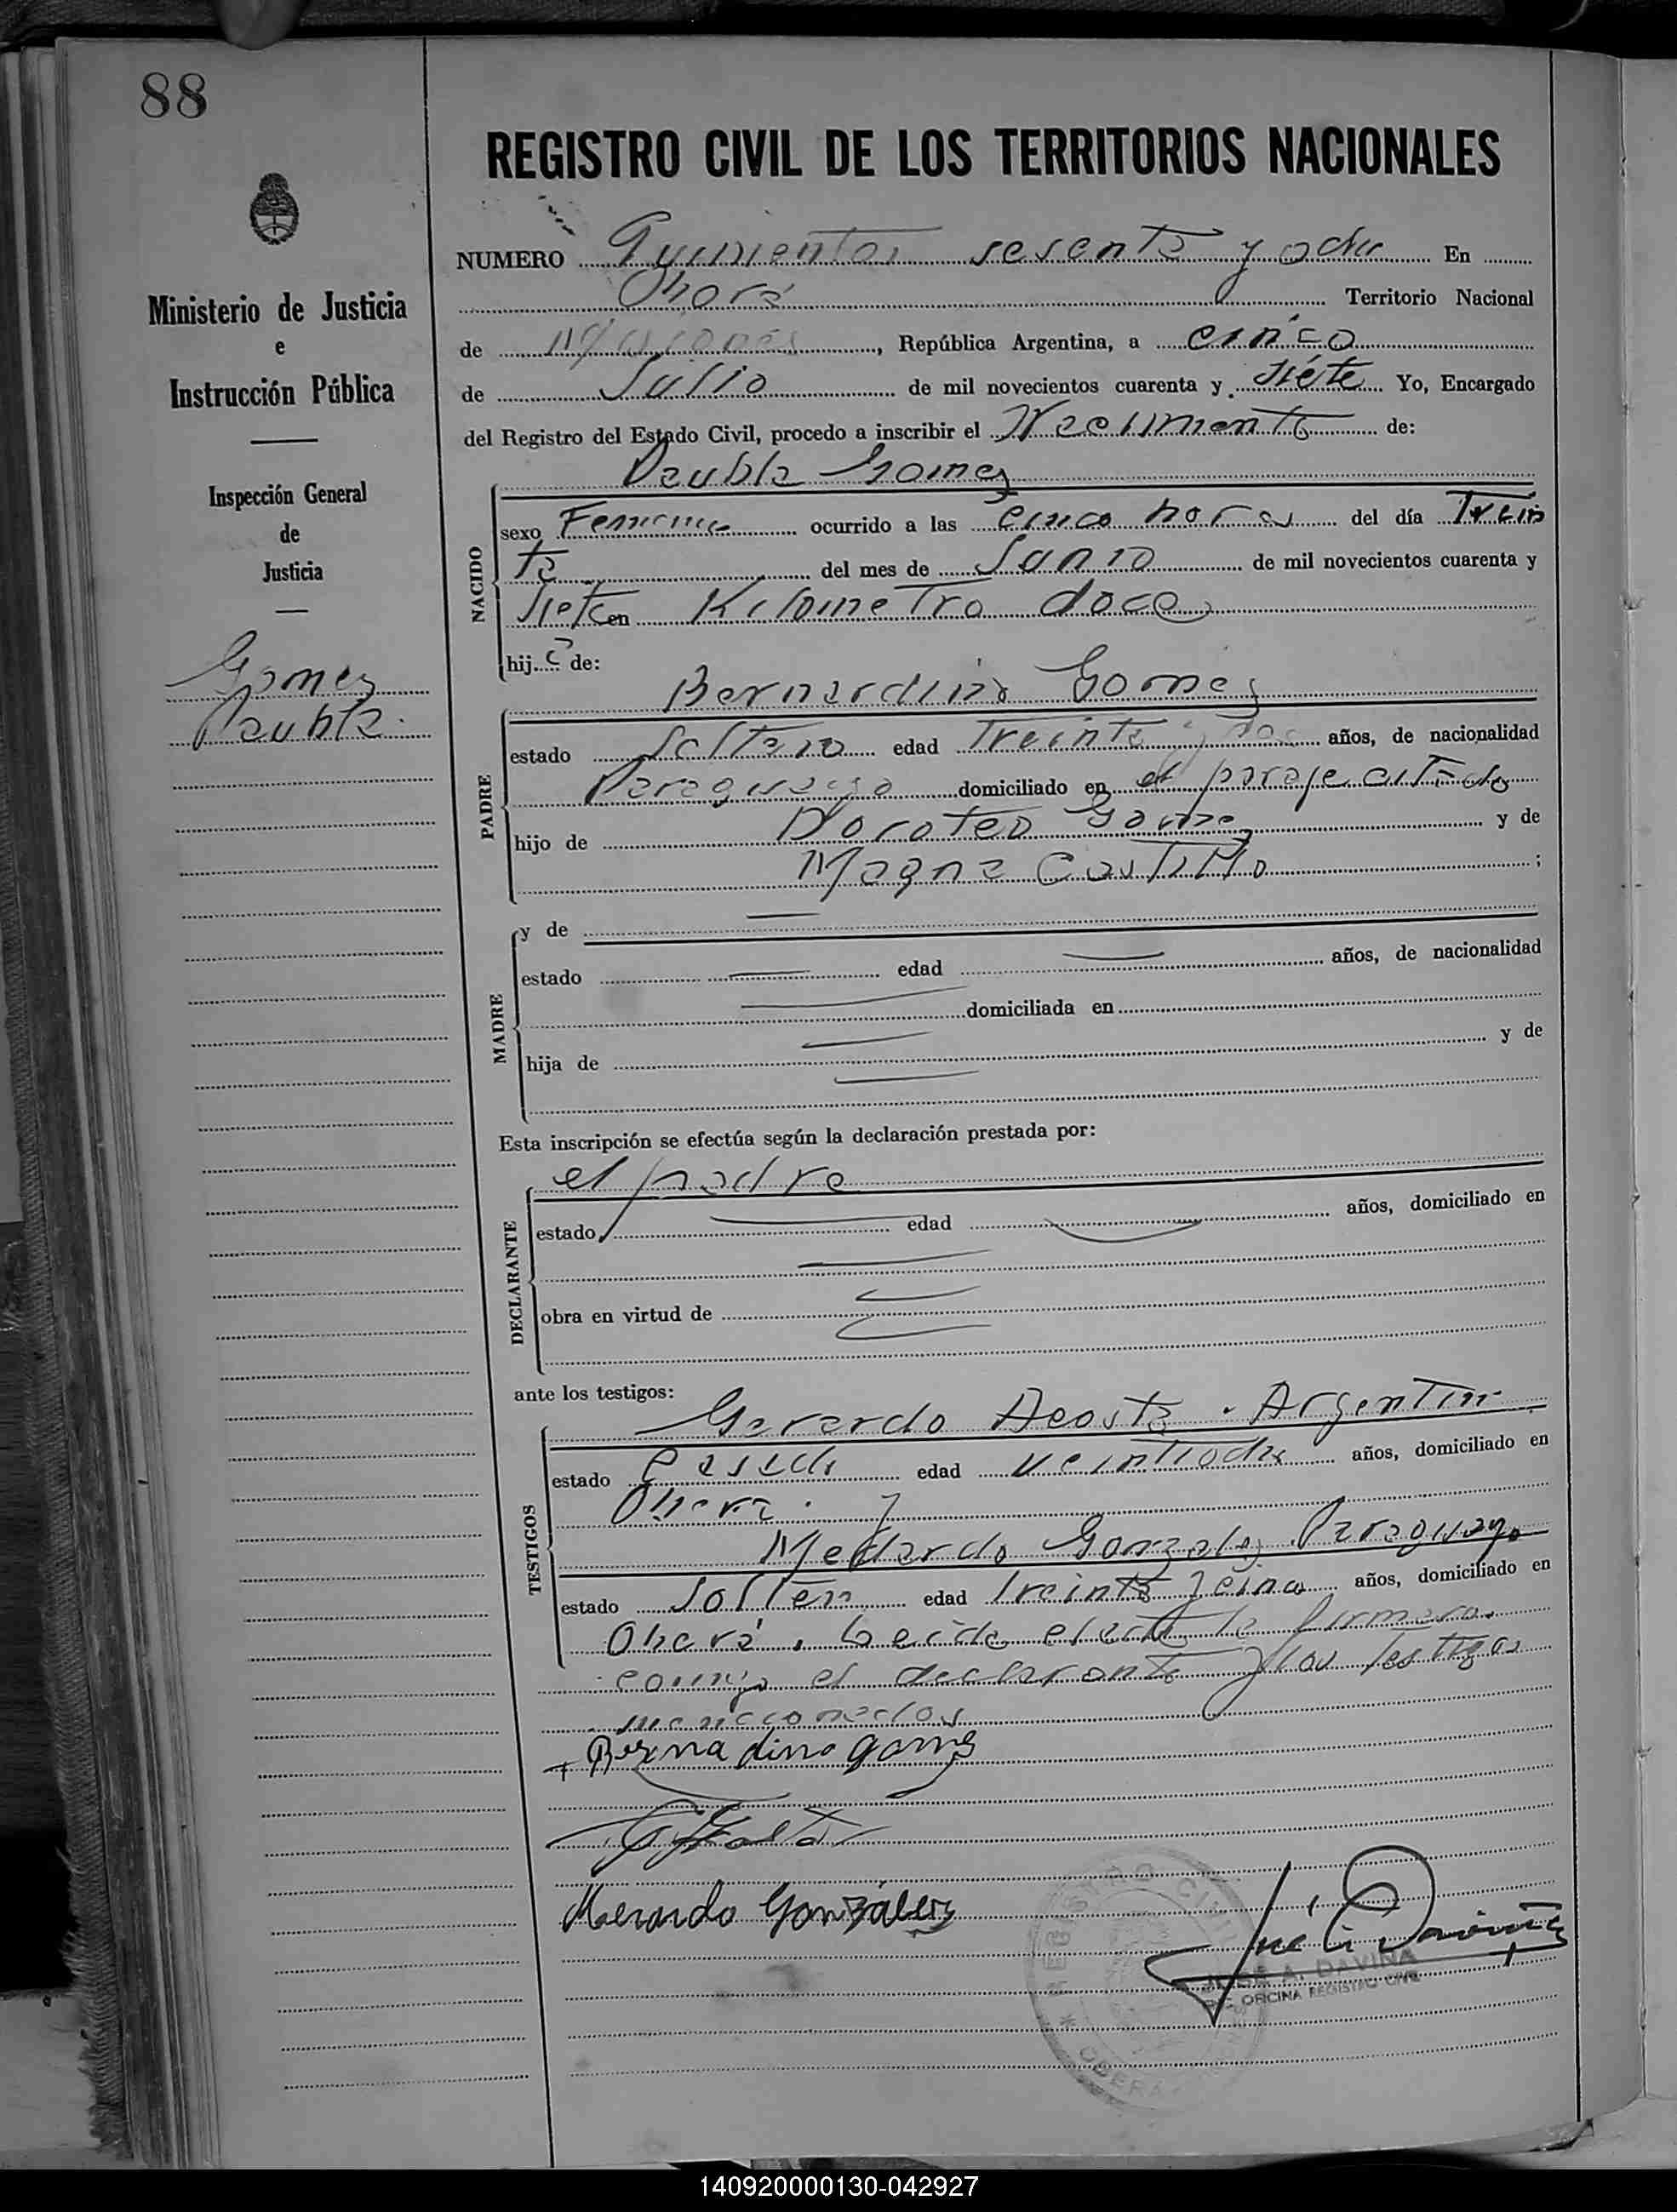 88
REGISTRO CIVIL DE LOS TERRITORIOS NACIONALES
Ministerio de Justicia
e
Instrucción Pública
Inspección General
de
Justicia
Gomez
NUMERO Quinientos sesenta y ocho En
Oberá Territorio Nacional
de Misiones, República Argentina, a cinco
de Julio de mil novecientos cuarenta y siete Yo, Encargado
del Registro del Estado Civil, procedo a inscribir el Nacimiento de:
Gomez
NACIDO
sexo Femenino ocurrido a las cinco horas del día Trein
ta del mes de Junio de mil novecientos cuarenta y
siete en Kilometro doce
hij a de:
Bernardino Gomez
PADRE
estado Soltero edad Treinta y dos años, de nacionalidad
Paraguayo domiciliado en el paraje citado
hijo de Doroteo Gomez y de
Magna Castillo ;
MADRE
y de
estado edad años, de nacionalidad
domiciliada en
hija de y de
Esta inscripción se efectúa según la declaración prestada por:
el padre
DECLARANTE
estado edad años, domiciliado en
obra en virtud de
ante los testigos:
Gerardo Acosta - Argentino
TESTIGOS
estado Casado edad veintiocho años, domiciliado en
Oberá y
Medardo Gonzalez Paraguayo
estado Soltero edad treinta y cinco años, domiciliado en
Oberá. Leída el acta la firmaron
conmigo el declarante y los testigos
mencionados
Bernadino gomez
Merardo Gonzàlez
REGISTRO CIVIL
OBERA
JOSÉ A. DAVIÑA
OFICINA REGISTRO CIVIL
140920000130-042927